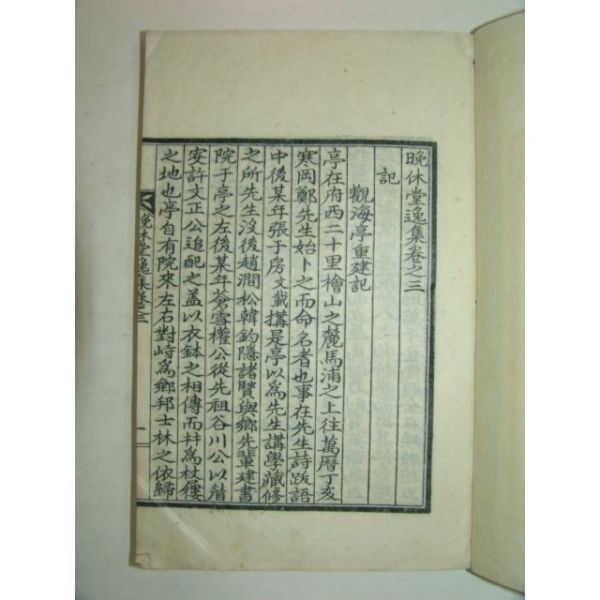 晩休堂逸集卷之三
記
觀海亭重建記
亭在府西二十里檜山之麓馬浦之上往萬曆丁亥
寒岡鄭先生始卜之而命名者也事在先生詩跋語
中後某年張于房文載搆是亭以爲先生講學藏修
之所先生沒後趙澗松韓釣隱諸賢與鄕先輩建書
院于亭之左後某年蒼雪權公從先祖谷川公以眉
安許文正公追配之盖以衣鉢之相傳而幷爲杖屨
之地也亭自有院來左右對峙爲鄕邦士林之依歸
晩休堂逸集卷三
一